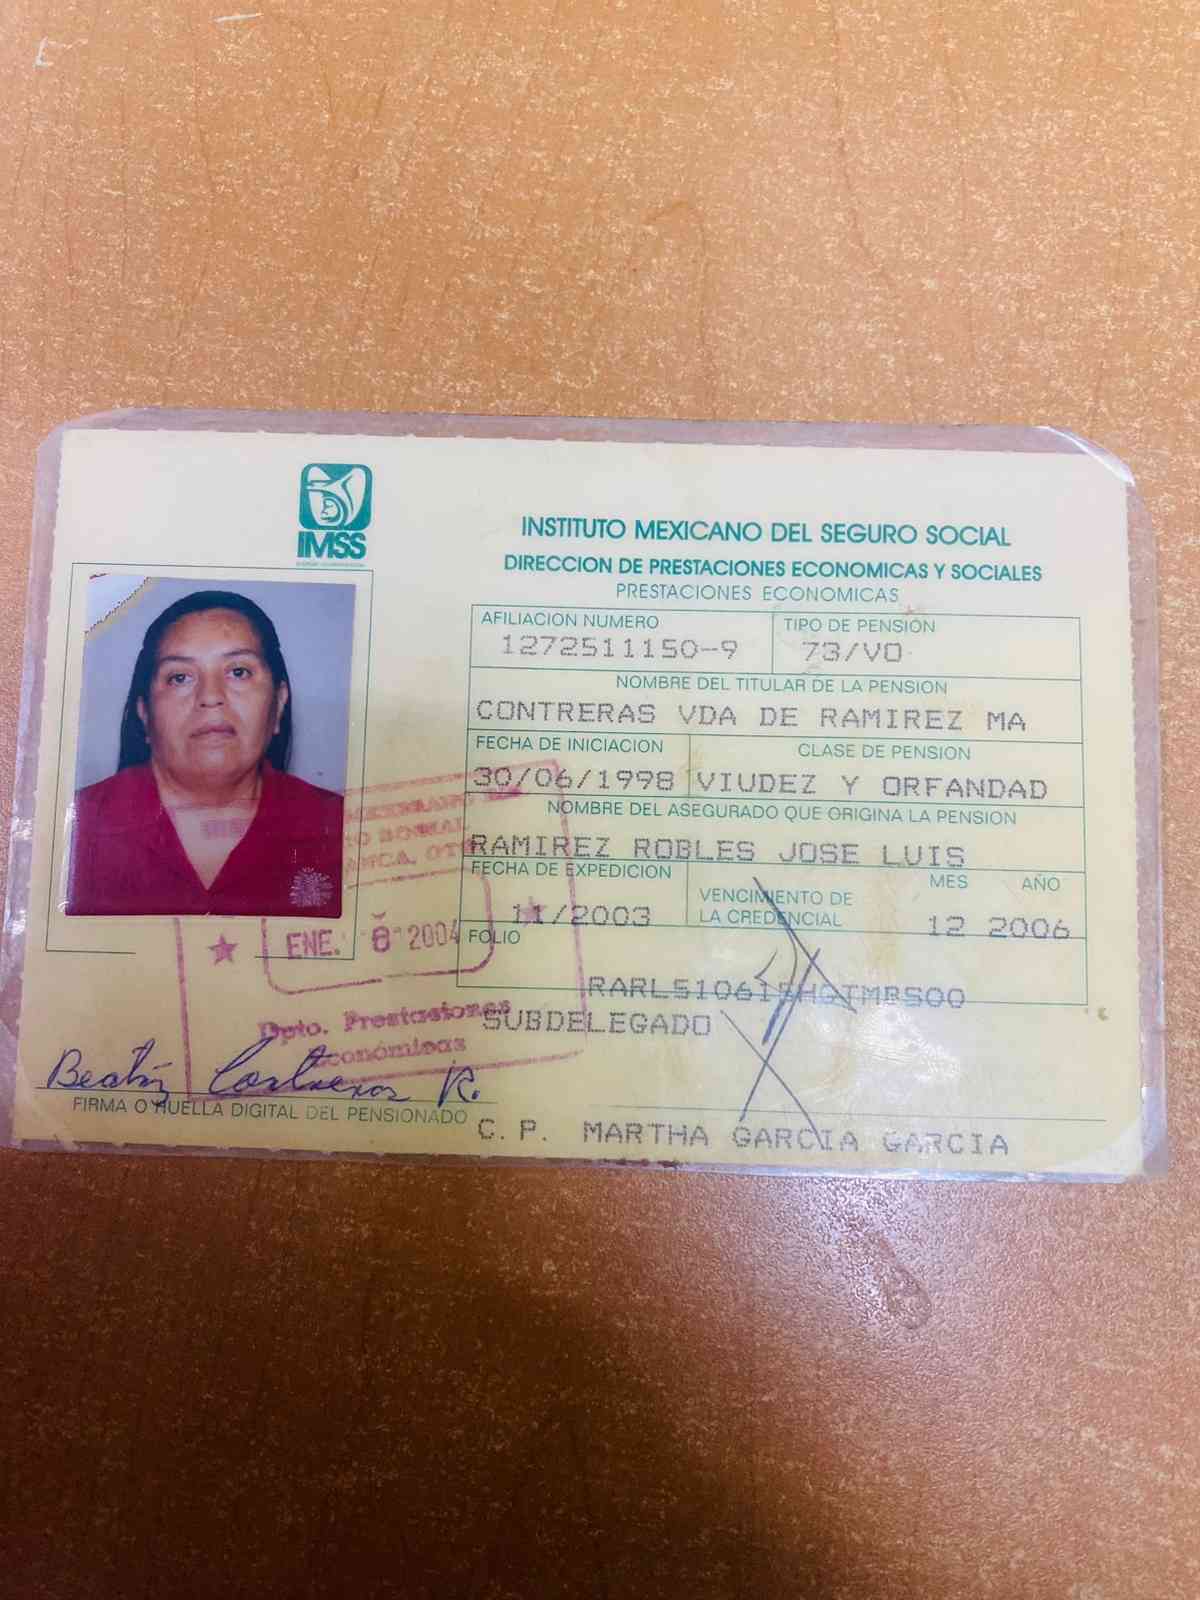 IMSS
INSTITUTO MEXICANO DEL SEGURO SOCIAL
DIRECCION DE PRESTACIONES ECONOMICAS Y SOCIALES
PRESTACIONES ECONOMICAS
AFILIACION NUMERO
1272511150-9
TIPO DE PENSIÓN
73/VO
NOMBRE DEL TITULAR DE LA PENSION
CONTRERAS VDA DE RAMIREZ MA
FECHA DE INICIACION
30/06/1998
CLASE DE PENSION
VIUDEZ Y ORFANDAD
NOMBRE DEL ASEGURADO QUE ORIGINA LA PENSION
RAMIREZ ROBLES JOSE LUIS
FECHA DE EXPEDICION
11/2003
VENCIMIENTO DE
LA CREDENCIAL
MES AÑO
12 2006
FOLIO
SUBDELEGADO
C. P. MARTHA GARCIA GARCIA
ENE. 8 2004
Dpto. Prestaciones
Económicas
Beatriz Contreras R.
FIRMA O HUELLA DIGITAL DEL PENSIONADO